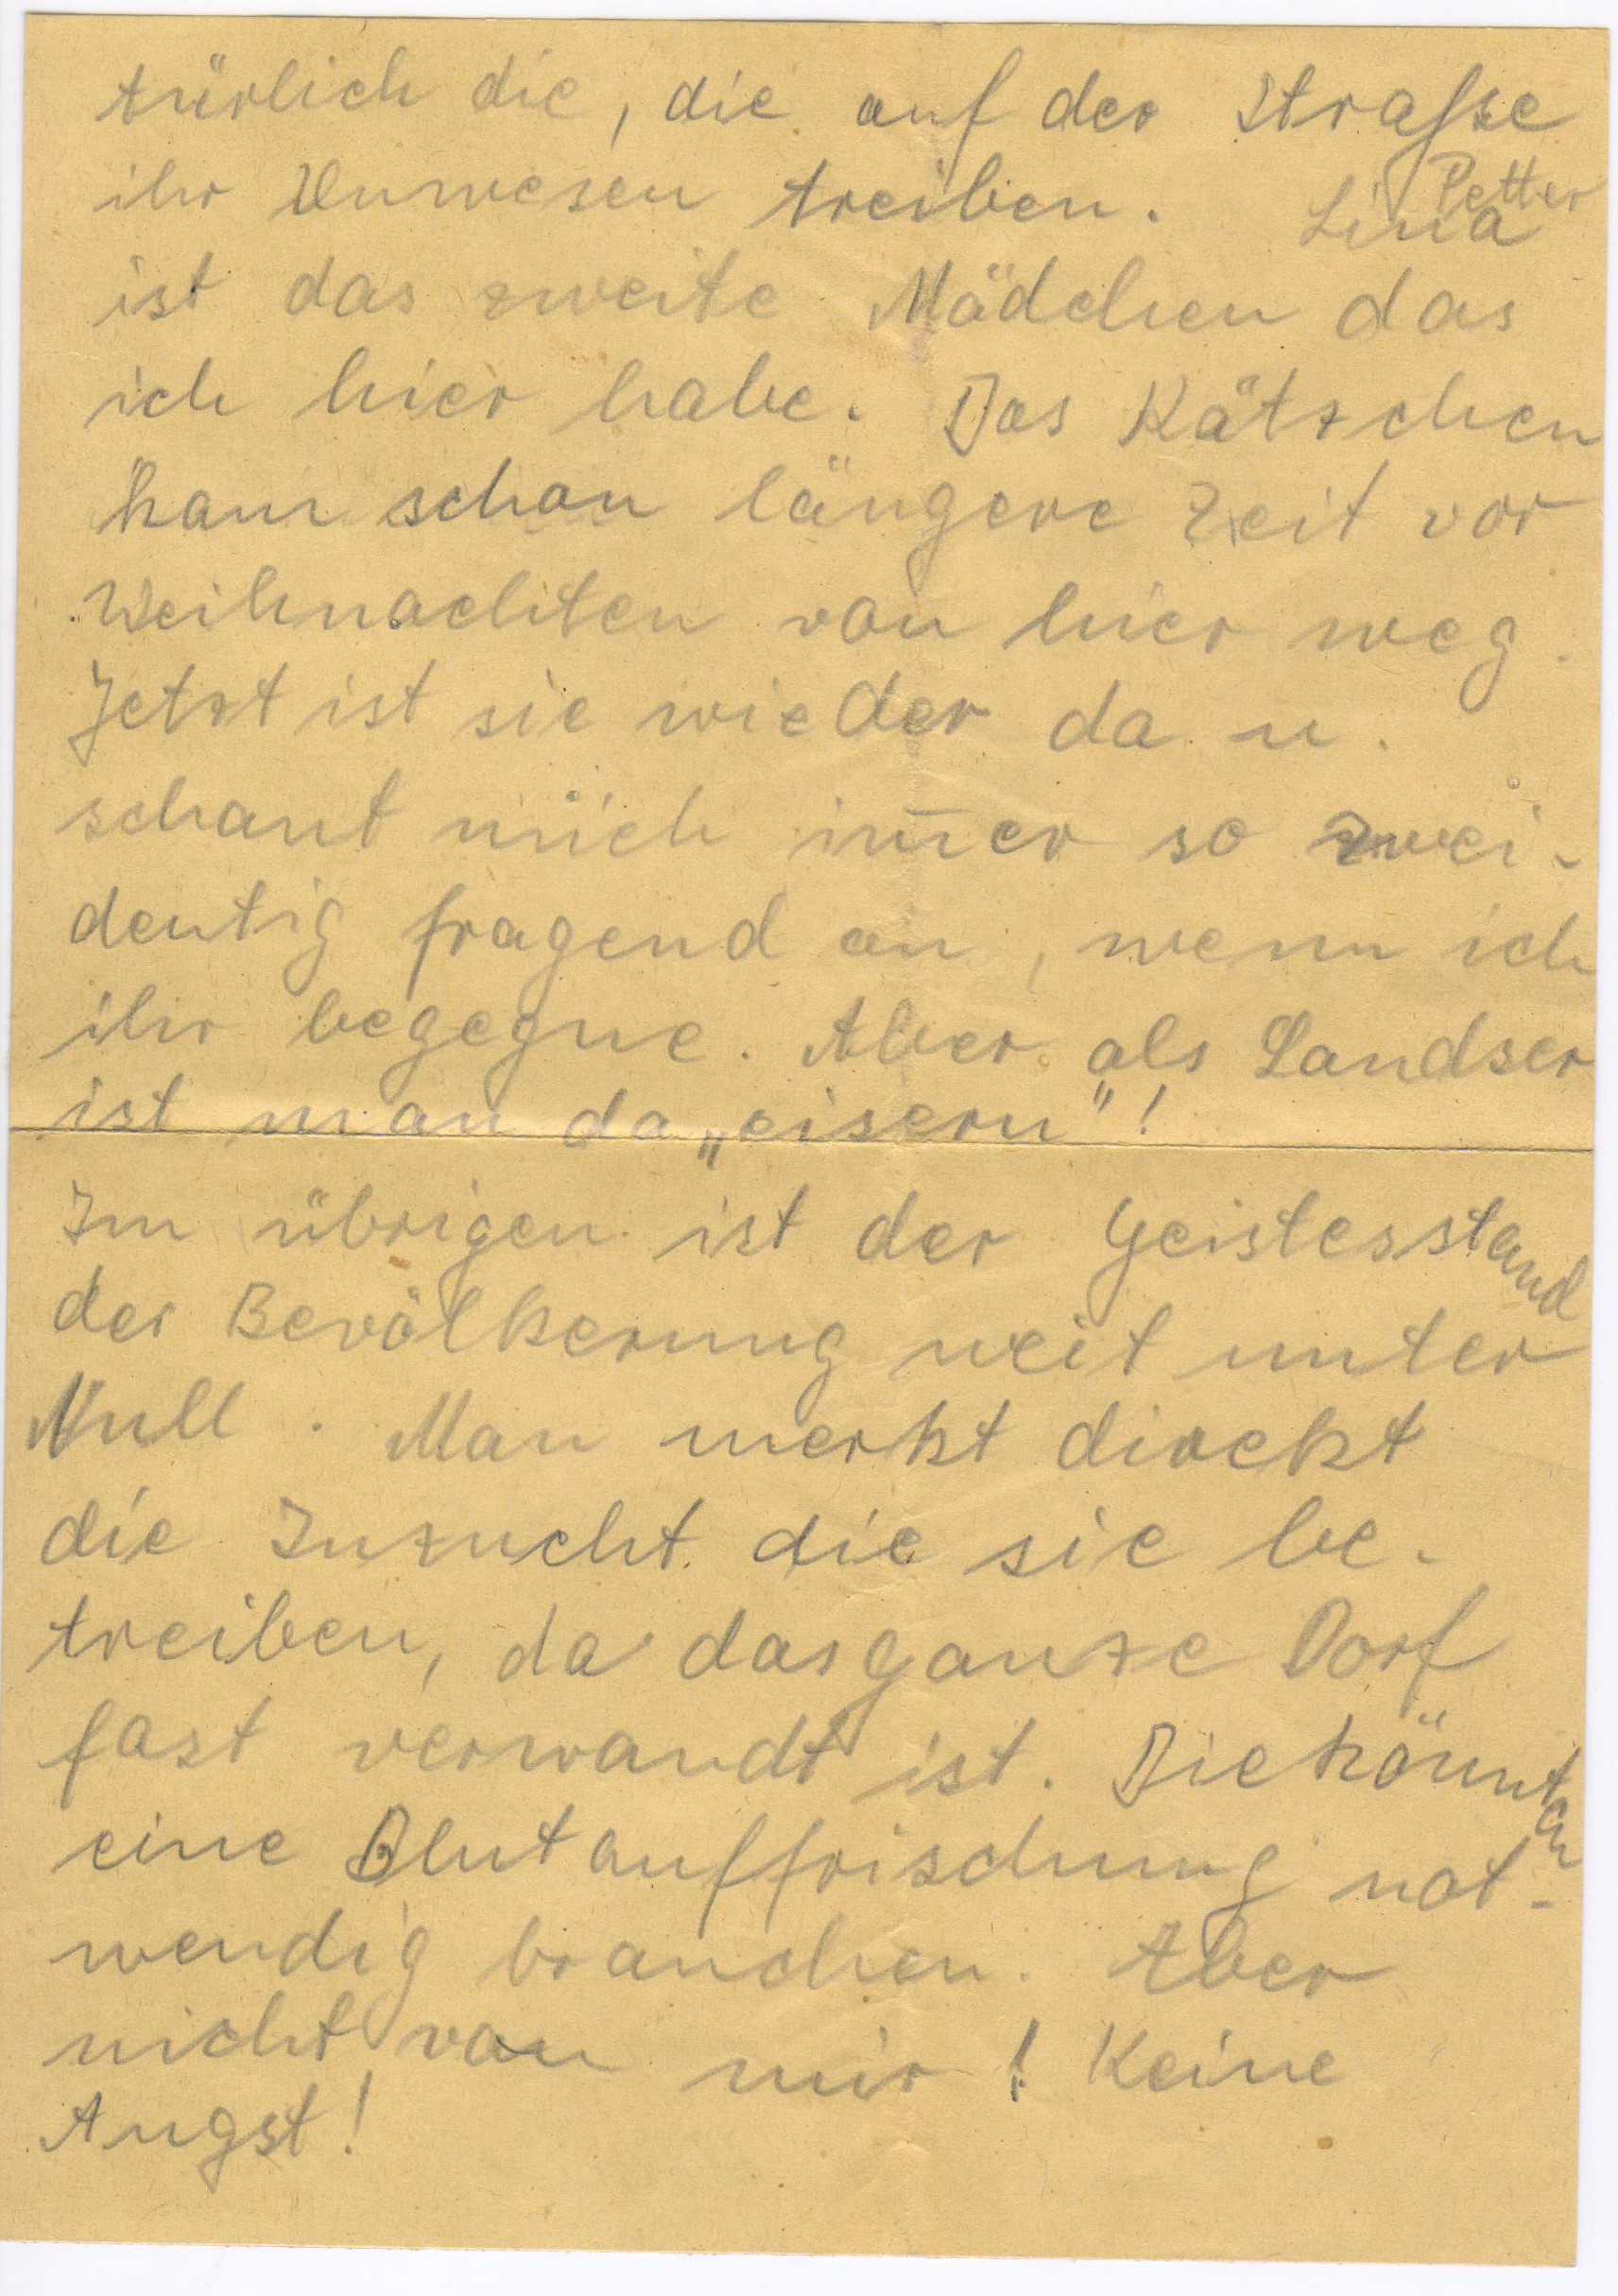 türlich die, die auf der Strafse
ihr Unwesen treiben. Lina Petter
ist das zweite Mädchen das
ich hier habe. Das Kätzchen
kam schon längere Zeit vor
Weihnachten von hier weg.
Jetzt ist sie wieder da u.
schaut mich im̄er so zwei-
deutig fragend an, wenn ich
ihr begegne. Aber als Landser
ist man da „eisern"!
Im übrigen ist der Geistesstand
der Bevölkerung weit unter
Null. Man merkt direkt
die Inzucht die sie be-
treiben, da das ganze Dorf
fast verwandt ist. Die könnten
eine Blutauffrischung not-
wendig brauchen. Aber
nicht von mir! Keine
Angst!